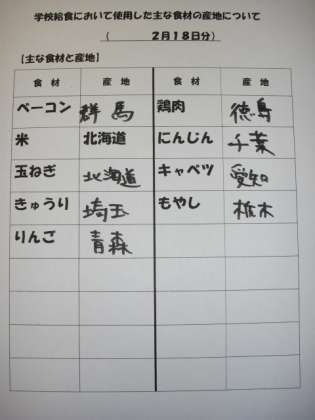 学校給食において使用した主な食材の産地について
( 2月18日分)
【主な食材と産地】
食材 産地 食材 産地
ベーコン 群馬 鶏肉 徳島
米 北海道 にんじん 千葉
玉ねぎ 北海道 キャベツ 愛知
きゅうり 埼玉 もやし 栃木
りんご 青森